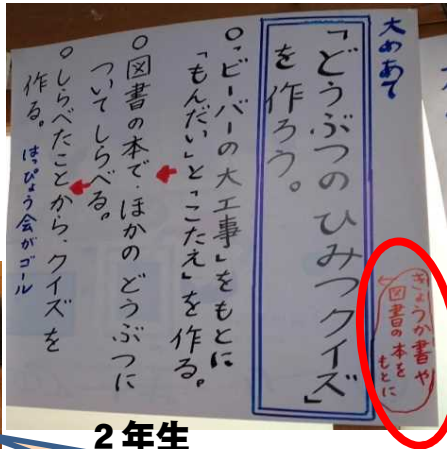 大めあて
「どうぶつの ひみつクイズ」
を作ろう。
きょうか書や
図書の本を
もとに
○「ビーバーの大工事」をもとに
「もんだい」と「こたえ」を作る。
○図書の本で、ほかの どうぶつに
ついてしらべる。
○しらべたことから、クイズを
作る。
はっぴょう会がゴール
2年生